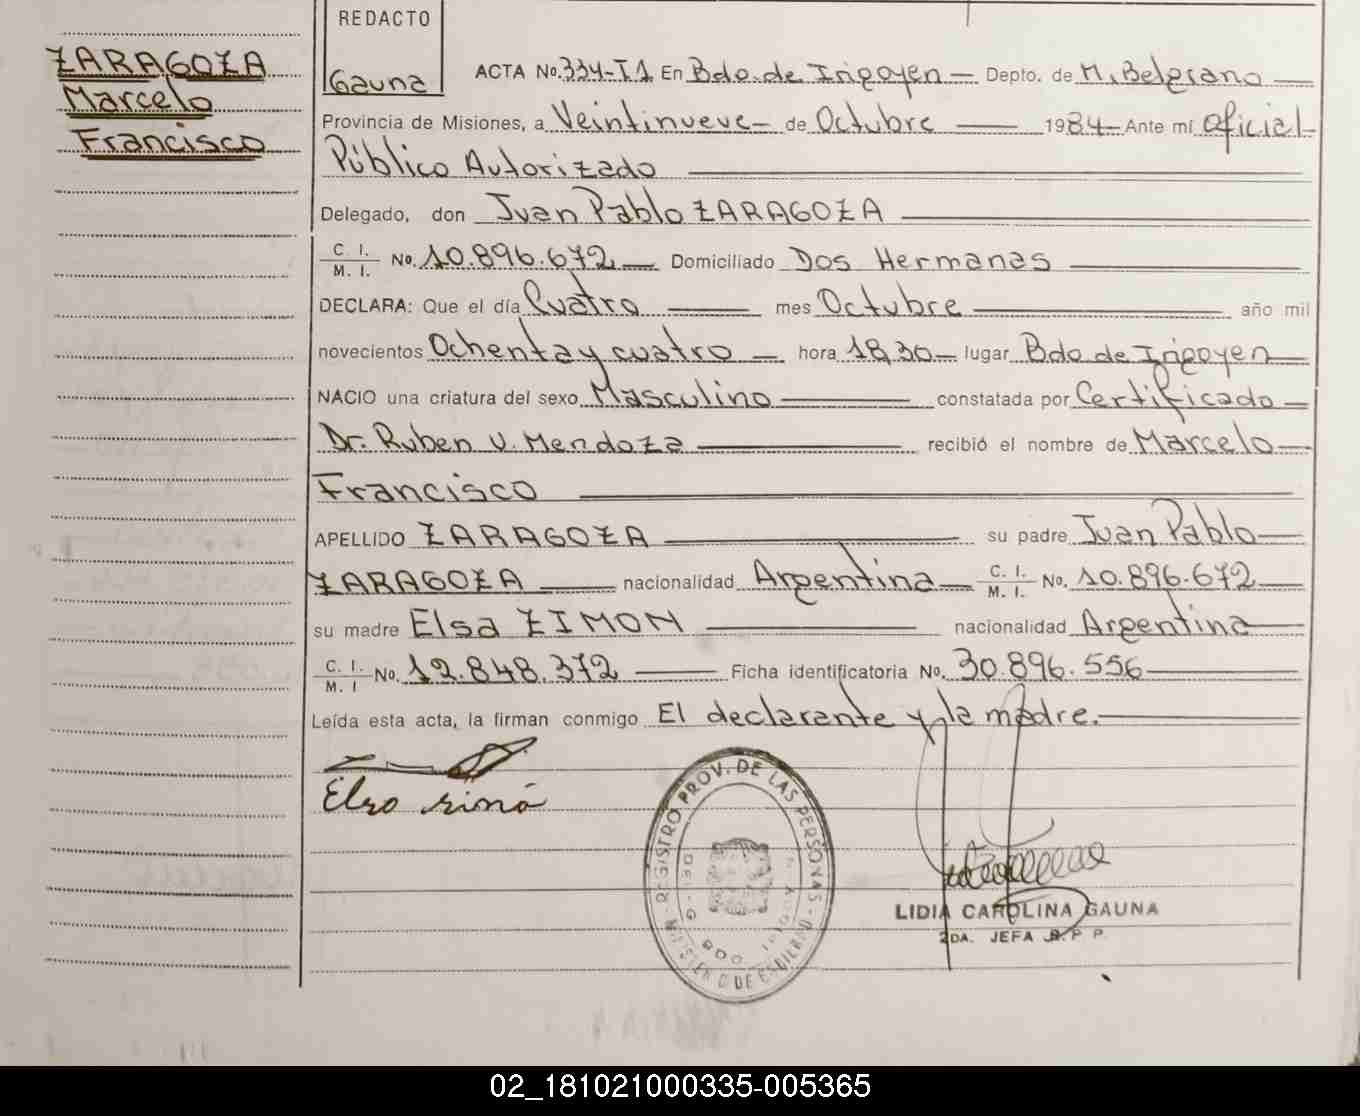 ZARAGOZA
Marcelo
Francisco
REDACTO
Gauna
ACTA No. 334-T1 En Bdo. de Irigoyen — Depto. de M. Belgrano
Provincia de Misiones, a Veintinueve - de Octubre — 1984 - Ante mí Oficial
Público Autorizado
Delegado, don Juan Pablo ZARAGOZA
C. I.
M. I. No. 10.896.672 — Domiciliado Dos Hermanas
DECLARA: Que el día Cuatro — mes Octubre — año mil
novecientos Ochenta y cuatro — hora 18,30 — lugar Bdo de Irigoyen
NACIO una criatura del sexo Masculino — constatada por Certificado
Dr. Ruben V. Mendoza — recibió el nombre de Marcelo
Francisco
APELLIDO ZARAGOZA — su padre Juan Pablo
ZARAGOZA — nacionalidad Argentina — C. I.
M. I. No. 10.896.672
su madre Elsa ZIMON — nacionalidad Argentina
C. I.
M. I No. 12.848.372 — Ficha identificatoria No. 30.896.556
Leída esta acta, la firman conmigo El declarante y la madre.
REGISTRO PROV. DE LAS PERSONAS
LIDIA CAROLINA GAUNA
2DA. JEFA R.P P.
02_181021000335-005365